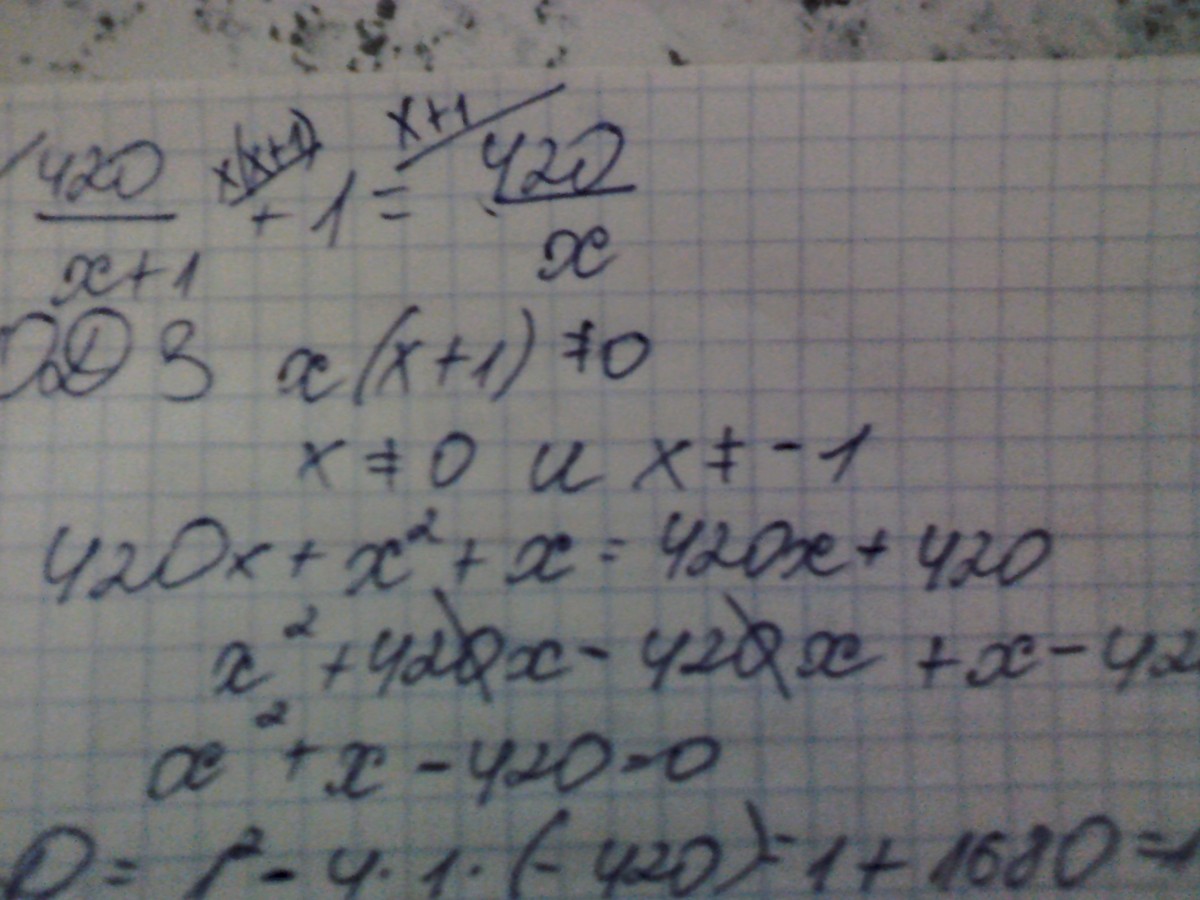 420/(x+1) x(x+1) + 1 = x+1 420/x
ОДЗ x(x+1) ≠ 0
x ≠ 0 и x ≠ -1
420x + x² + x = 420x + 420
x² + 420x - 420x + x - 42
x² + x - 420 = 0
D = 1² - 4·1·(-420) = 1 + 1680 = 1